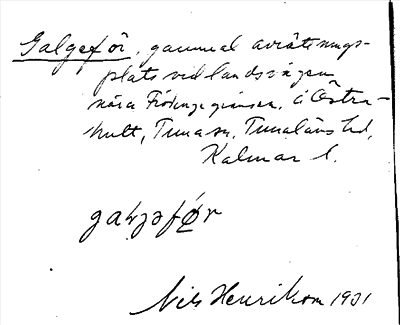 Galgeför, gammal avrättnings-
plats vid landsvägen
nära Frödingegränsen, å Östra-
hult, Tuna sn, Tunaläns hd,
Kalmar l.
Nils Henrikson 1931